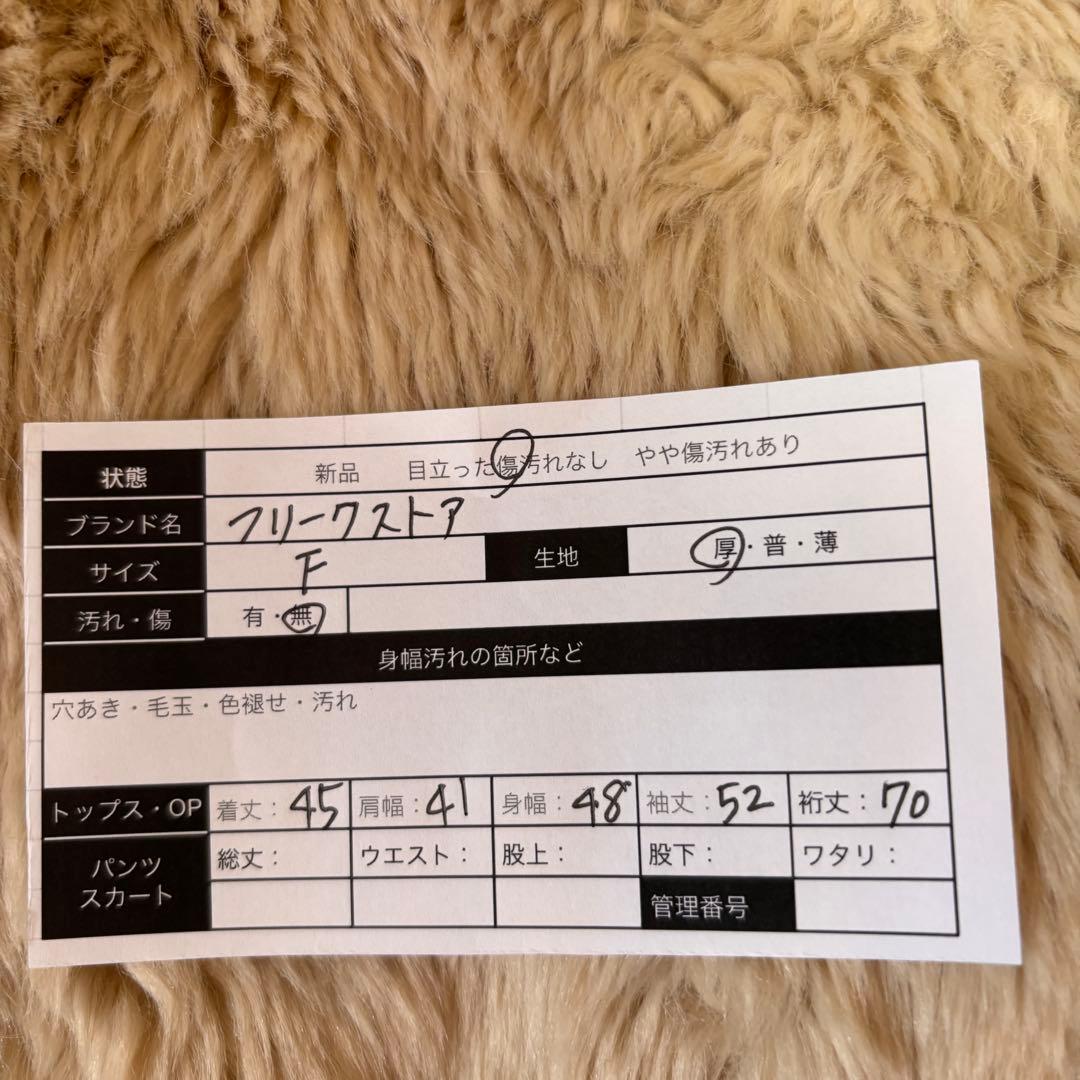 状態 新品 目立った傷汚れなし やや傷汚れあり
ブランド名 フリークストア
サイズ F 生地 厚・普・薄
汚れ・傷 有・無
身幅汚れの箇所など
穴あき・毛玉・色褪せ・汚れ
トップス・OP 着丈：45 肩幅：41 身幅：48 袖丈：52 裄丈：70
パンツ スカート 総丈： ウエスト： 股上： 股下： ワタリ：
管理番号